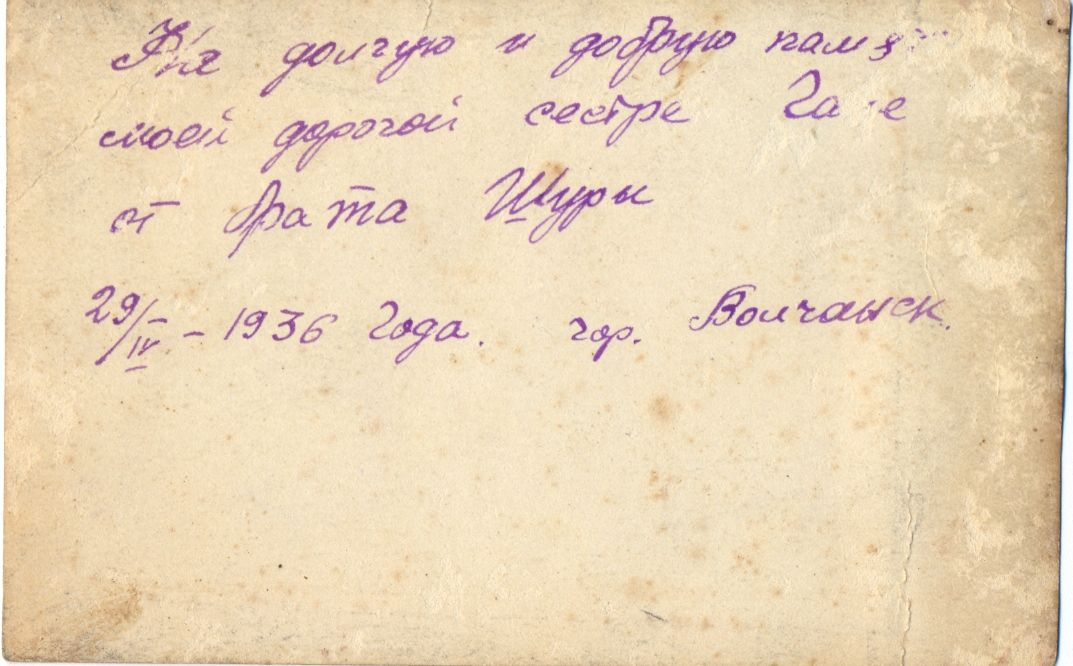 На долгую и добрую память
моей дорогой сестре Гале
от брата Шуры
29/IV – 1936 года. гор. Волчанск.